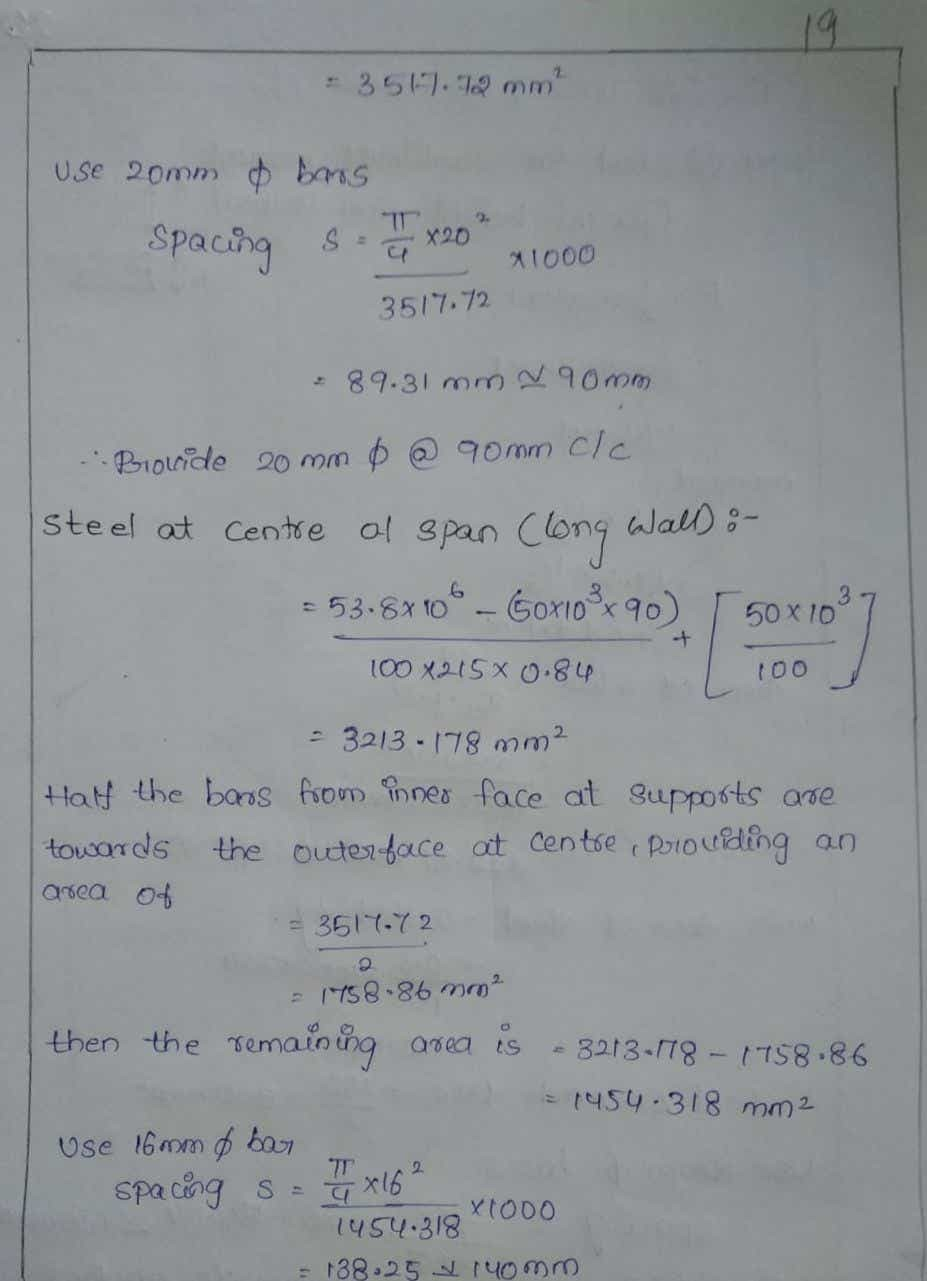 19
= 3517.72 mm²
Use 20mm ϕ bars
Spacing S = π/4 ×20² / 3517.72 ×1000
= 89.31 mm ≃ 90mm
∴ Provide 20 mm ϕ @ 90mm c/c
Steel at centre of span (long wall) :-
= 53.8×10⁶ − (50×10³×90) / 100×215×0.84 + [50×10³ / 100]
= 3213.178 mm²
Half the bars from inner face at supports are
towards the outerface at centre, providing an
area of
= 3517.72 / 2
= 1758.86 mm²
then the remaining area is = 3213.178 – 1758.86
= 1454.318 mm²
Use 16mm ϕ bar
spacing S = π/4 ×16² / 1454.318 ×1000
= 138.25 ≃ 140mm